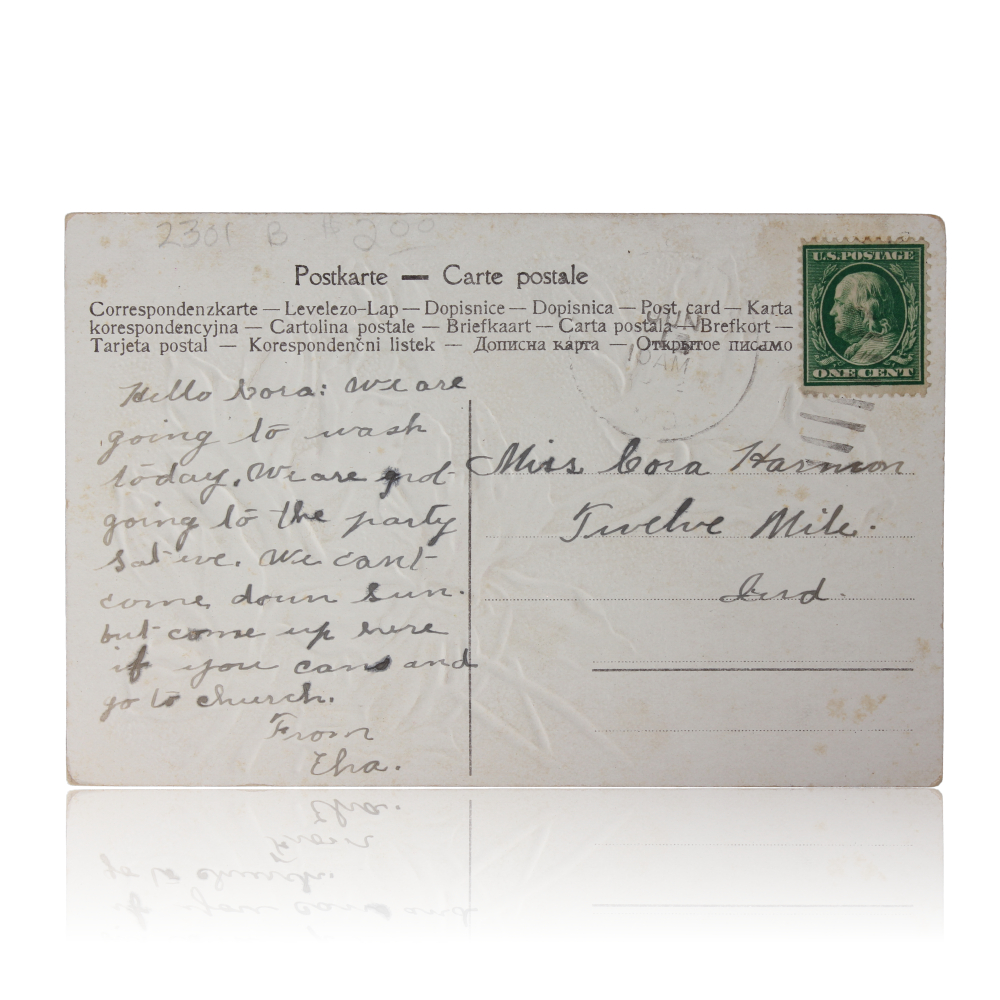 2301 B $2.00
U.S. POSTAGE
ONE CENT
Postkarte — Carte postale
Correspondenzkarte — Levelezo-Lap — Dopisnice — Dopisnica — Post card — Karta
korespondencyjna — Cartolina postale — Briefkaart — Carta postala — Brefkort —
Tarjeta postal — Korespondenční listek — Дописна карта — Открытое письмо
JUN
10 AM
Hello Cora: We are
going to wash
today. We are not
going to the party
Sat eve. We cant
come down Sun.
but come up here
if you can and
go to church.
From
Miss Cora Harmon
Twelve Mile.
Ind.